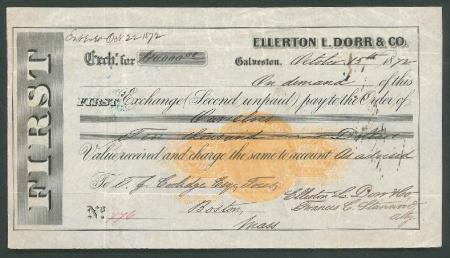 Entered Oct 22 1872
ELLERTON L. DORR & CO.
Exch. for $10,000.00
Galveston, October 15th 1872
On demand of this
FIRST Exchange (Second unpaid) pay to the Order of
Ourselves
Ten Thousand Dollars
Value received and charge the same to account As advised
To T. J. Coolidge Esq. Treas.
Ellerton L. Dorr & Co
Boston,
Francis C.
Mass
Atty
No. 776
FIRST